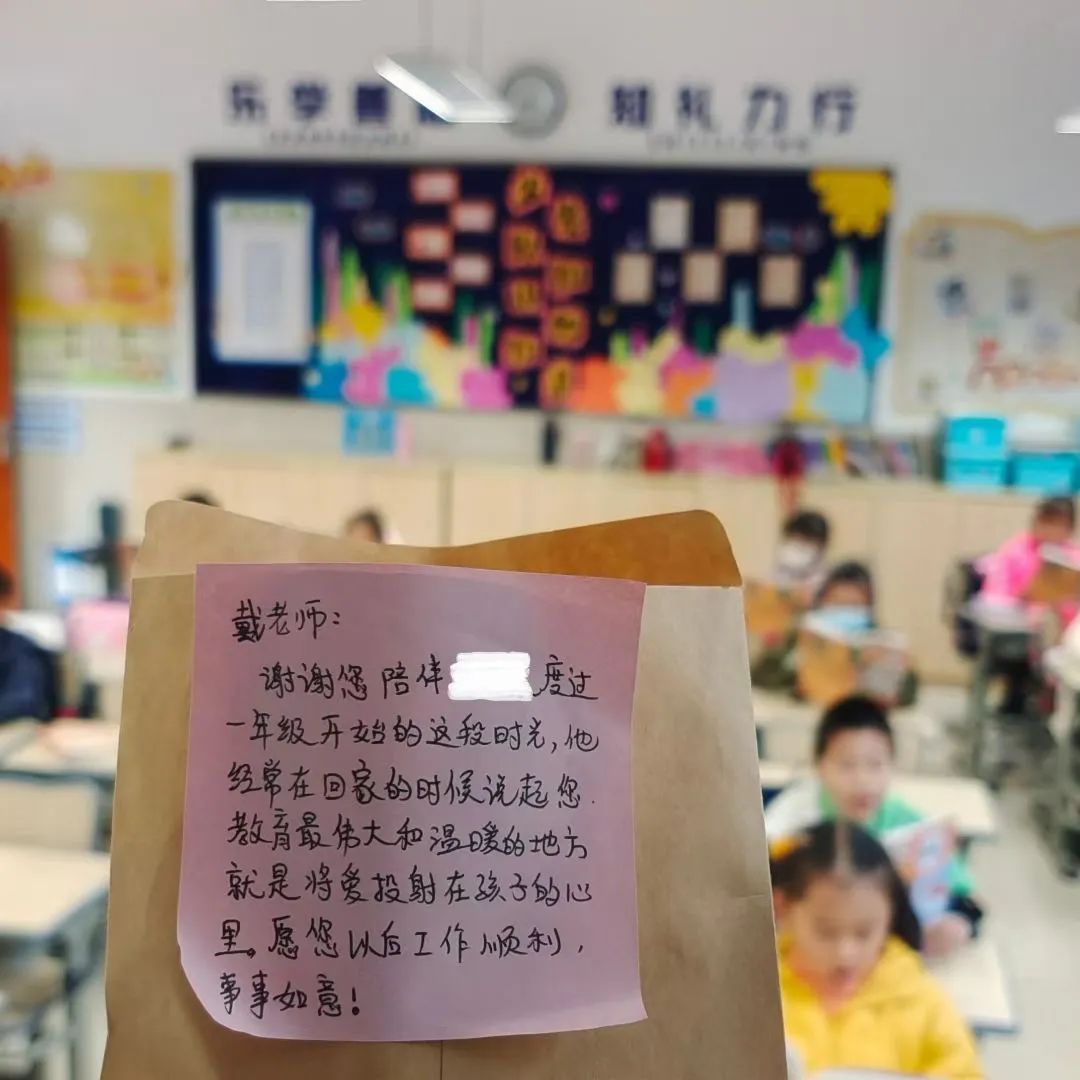 乐学善
知礼力行
戴老师：
谢谢您陪伴 度过
一年级开始的这段时光，他
经常在回家的时候说起您.
教育最伟大和温暖的地方
就是将爱投射在孩子的心
里。愿您以后工作顺利，
事事如意！